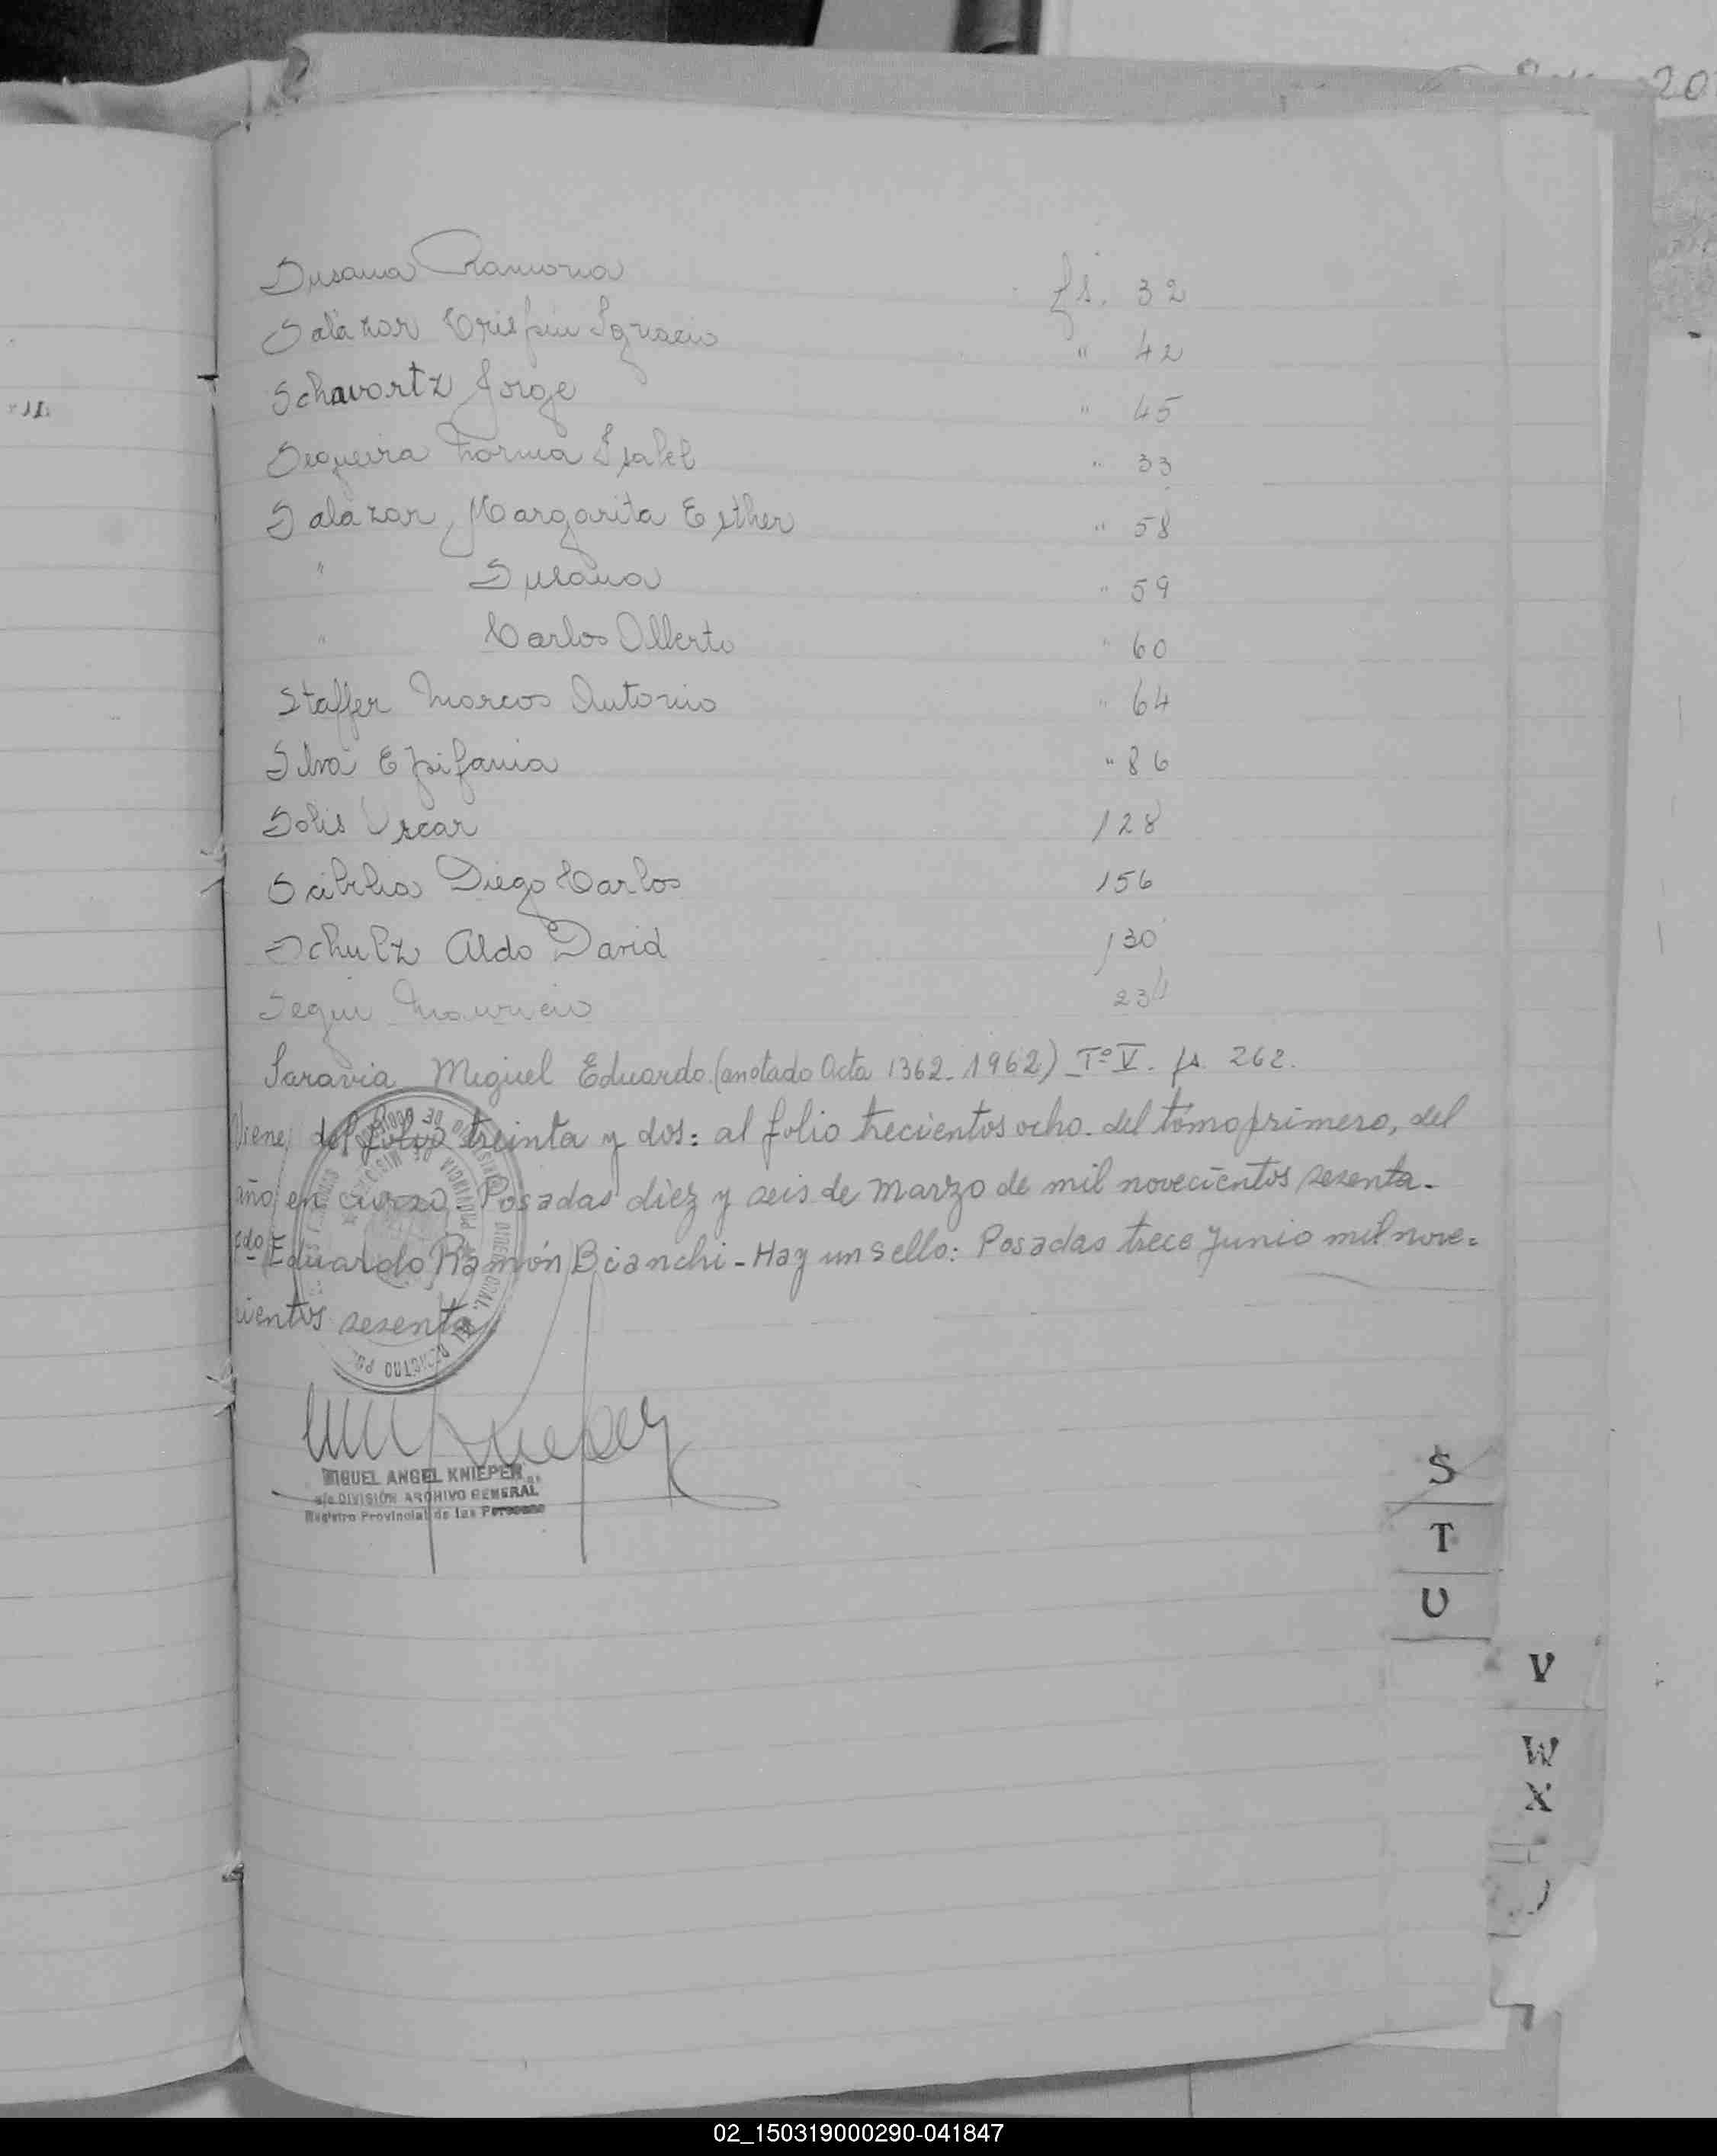 Susana Ramona fs. 32
Salazar Crispin Ignacio " 42
Schavortz Jorge " 45
Sequeira Norma Isabel " 33
Salazar, Margarita Esther " 58
" Susana " 59
" Carlos Alberto " 60
Staffer Marcos Antonio " 64
Silva Epifania " 86
Solis Oscar 128
Diego Carlos 156
Schulz Aldo David 130
Segui Mauricio 234
Saravia Miguel Eduardo (anotado Acta 1362-1962) Tº V. fs. 262.
Viene del folio treinta y dos: al folio trecientos ocho. del tomo primero, del
año en curso, Posadas diez y seis de Marzo de mil novecientos sesenta.
Fdo Eduardo Ramón Bianchi - Hay un sello: Posadas trece Junio mil nove=
cientos sesenta
MIGUEL ANGEL KNIEPER
a/c DIVISIÓN ARCHIVO GENERAL
Registro Provincial de las Personas
S
T
U
V
W
X
02_150319000290-041847